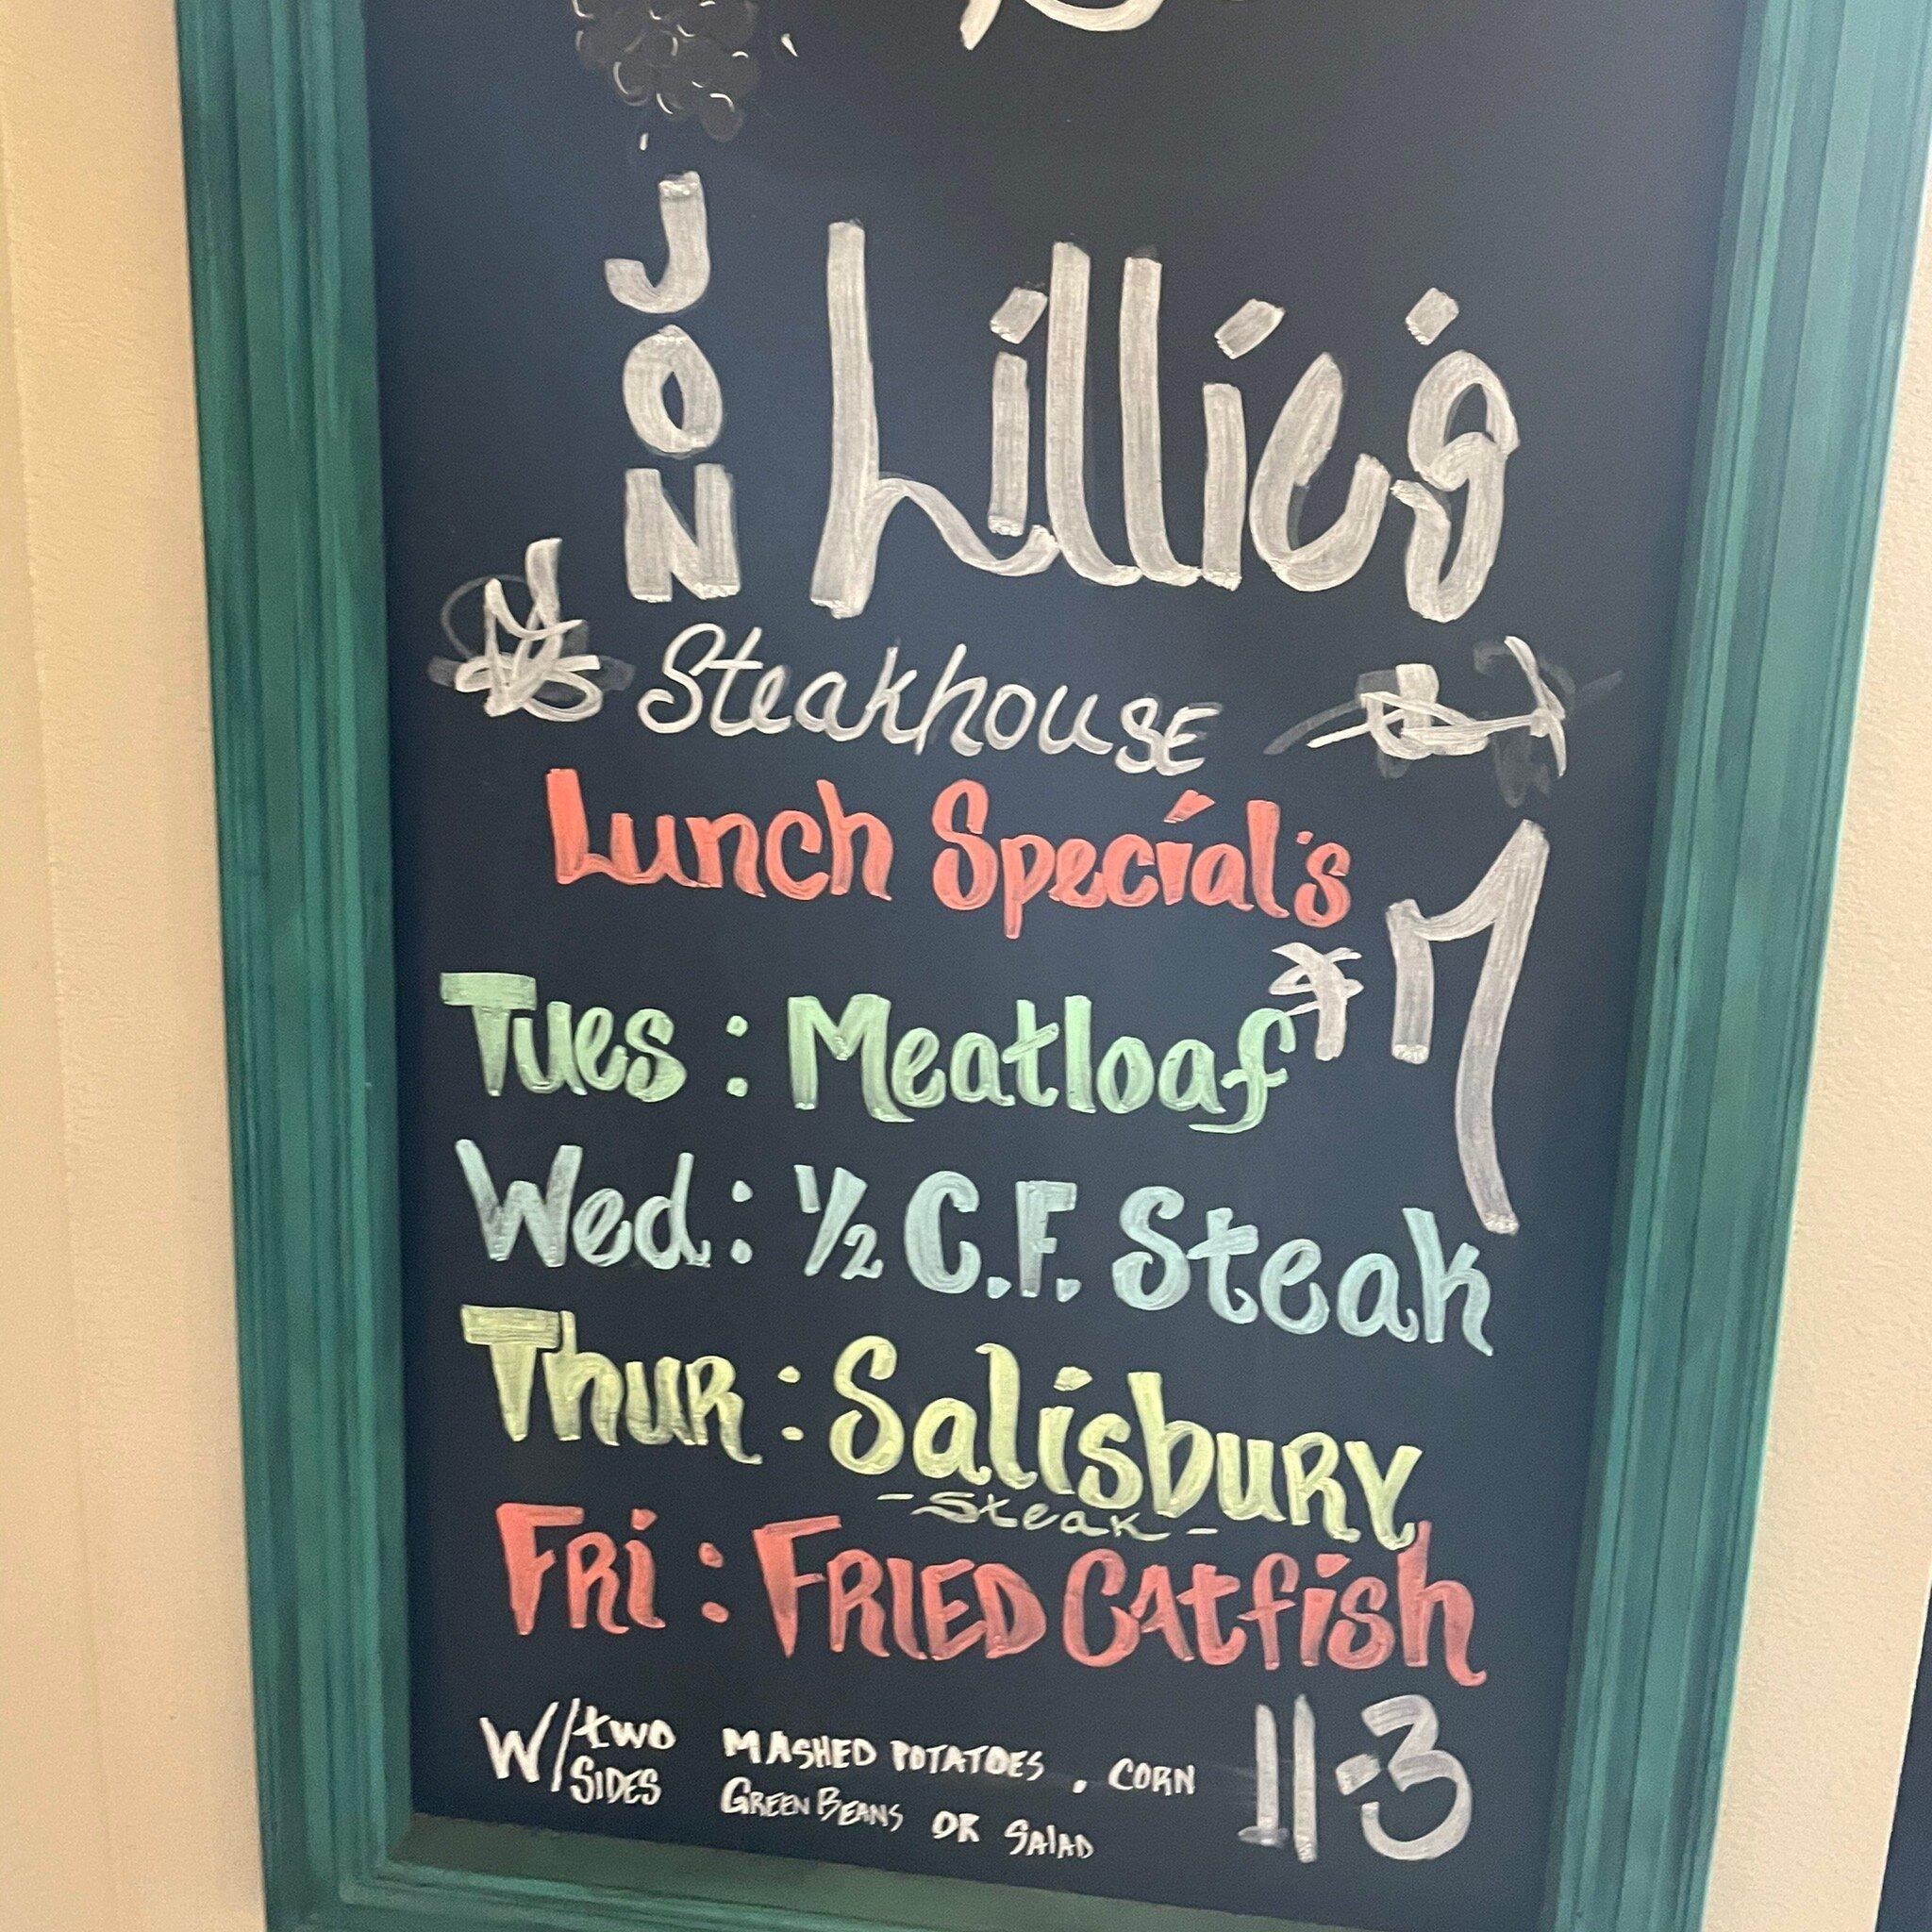 JON Lillie's
Steakhouse
Lunch Special's
Tues : Meatloaf
Wed : ½ C.F. Steak
Thur : Salisbury
- Steak -
Fri : FRIED Catfish
W/ two SIDES
MASHED POTATOES, CORN
GREEN BEANS OR SALAD
11-3